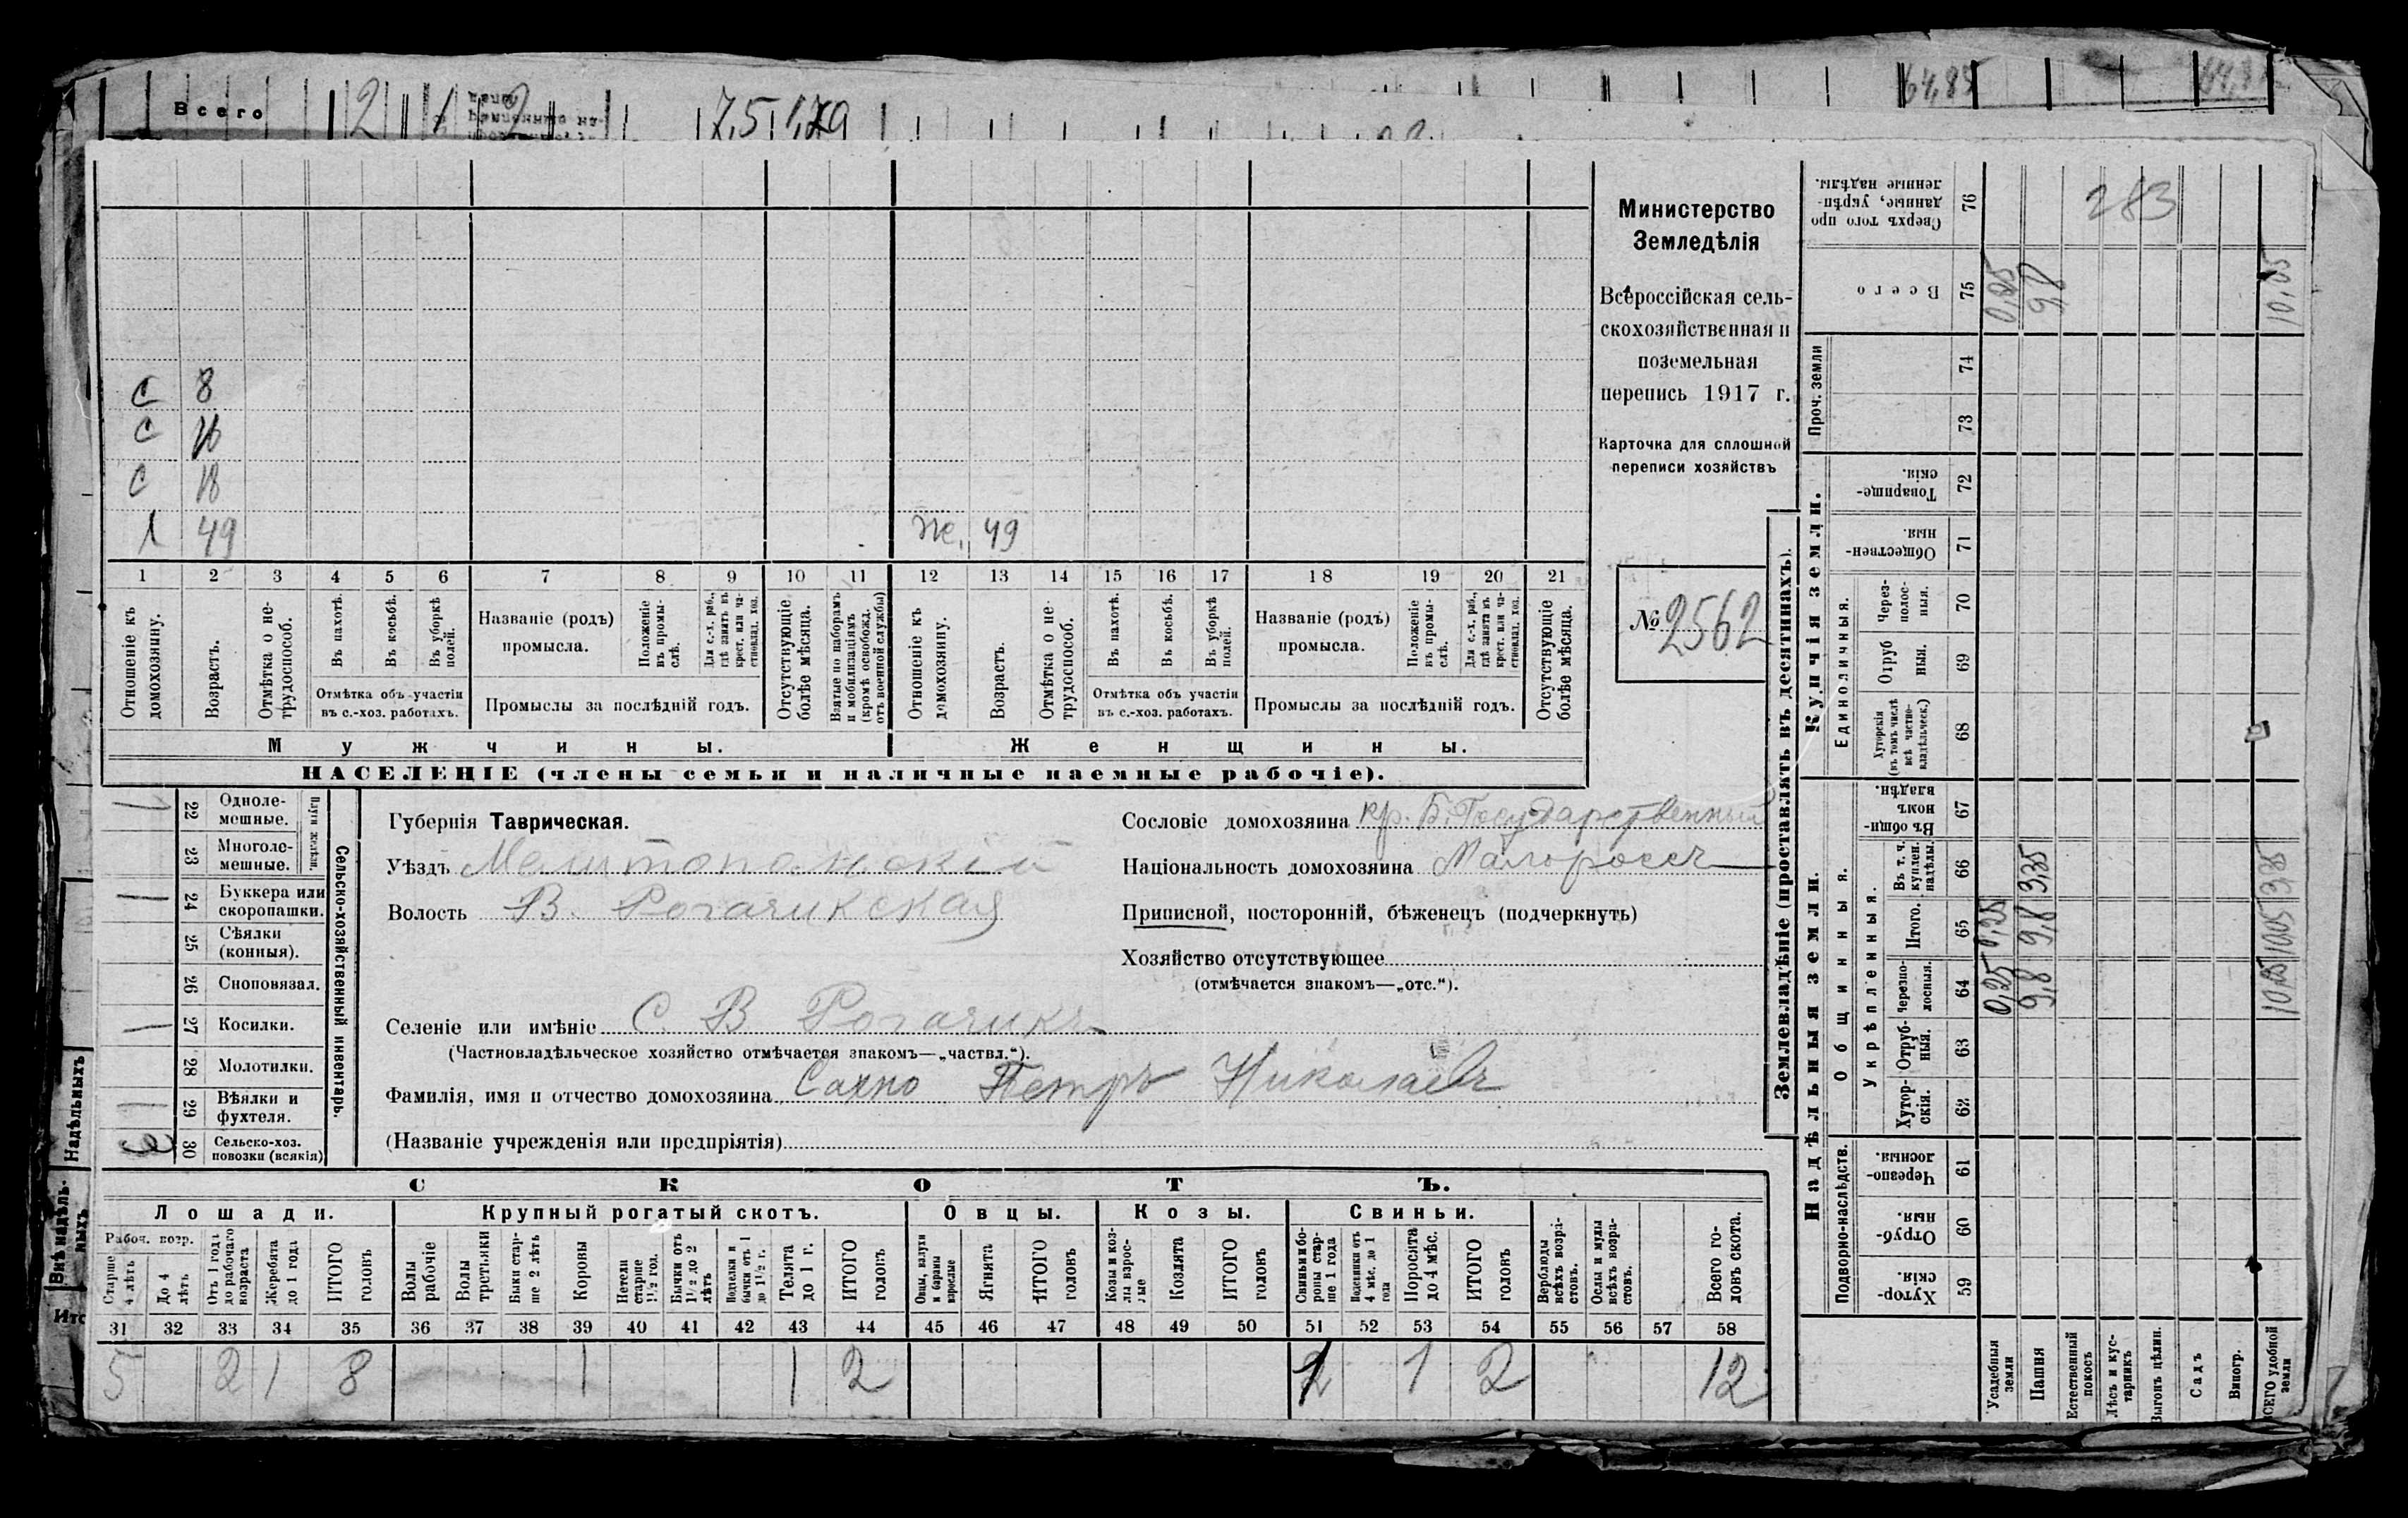 Всего 2 1 2 7,5 1,79 64,85
С 8
С
С 18
1 49 Же. 49
1 2 3 4 5 6 7 8 9 10 11 12 13 14 15 16 17 18 19 20 21
Отношеніе къ домохозяину.
Возрастъ.
Отмѣтка о нетрудоспособ.
Въ пахотѣ.
Въ косьбѣ.
Въ уборкѣ полей.
Отмѣтка объ участіи въ с.-хоз. работахъ.
Названіе (родъ) промысла.
Положеніе въ промыслѣ.
Для с.-х. раб., гдѣ занятъ въ крест. или частновлад. хоз.
Промыслы за послѣдній годъ.
Отсутствующіе болѣе мѣсяца.
Взятые по наборамъ и мобилизаціямъ (кромѣ освобожд. отъ военной службы)
Отношеніе къ домохозяину.
Возрастъ.
Отмѣтка о нетрудоспособ.
Въ пахотѣ.
Въ косьбѣ.
Въ уборкѣ полей.
Отмѣтка объ участіи въ с.-хоз. работахъ.
Названіе (родъ) промысла.
Положеніе въ промыслѣ.
Для с.-х. раб., гдѣ занята въ крест. или частновлад. хоз.
Промыслы за послѣдній годъ.
Отсутствующіе болѣе мѣсяца.
Мужчины. Женщины.
НАСЕЛЕНІЕ (члены семьи и наличные наемные рабочіе).
Министерство
Земледѣлія
Всероссійская сель-
скохозяйственная и
поземельная
перепись 1917 г.
Карточка для сплошной
переписи хозяйствъ
№ 2562
1 22 Однолемешные.
23 Многолемешные.
Плуги желѣзн.
1 24 Буккера или скоропашки.
25 Сѣялки (конныя).
26 Сноповязал.
1 27 Косилки.
28 Молотилки.
1 29 Вѣялки и фухтеля.
3 30 Сельско-хоз. повозки (всякія)
Сельско-хозяйственный инвентарь.
Губернія Таврическая.
Уѣздъ Мелитопольскій
Волость В. Рогачикская
Селеніе или имѣніе С. В Рогачикъ
(Частновладѣльческое хозяйство отмѣчается знакомъ—„частвл.“).
Фамилія, имя и отчество домохозяина Сахно Петръ Николаевъ
(Названіе учрежденія или предпріятія)
Сословіе домохозяина кр. Б. Государственный
Національность домохозяина Малороссъ
Приписной, посторонній, бѣженецъ (подчеркнуть)
Хозяйство отсутствующее
(отмѣчается знакомъ—„отс.“).
СКОТЪ.
Лошади. Крупный рогатый скотъ. Овцы. Козы. Свиньи.
Рабоч. возр.
Старше 4 лѣтъ
До 4 лѣтъ
Отъ 1 года до рабочаго возраста
Жеребята до 1 года
ИТОГО головъ
Волы рабочіе
Волы третьяки
Быки старше 2 лѣтъ
Коровы
Нетели старше 1½ год.
Бычки отъ 1½ до 2 лѣтъ
Подтелки и бычки отъ 1 до 1½ г.
Телята до 1 г.
ИТОГО головъ
Овцы, валухи и бараны взрослые
Ягнята
ИТОГО головъ
Козы и козлы взрослые
Козлята
ИТОГО головъ
Свиньи и боровы старше 1 года
Подсвинки отъ 4 мѣс. до 1 года
Поросята до 4 мѣс.
ИТОГО головъ
Верблюды всѣхъ возрастовъ.
Ослы и мулы всѣхъ возрастовъ.
Всего головъ скота.
31 32 33 34 35 36 37 38 39 40 41 42 43 44 45 46 47 48 49 50 51 52 53 54 55 56 57 58
5 2 1 8 1 1 2 1 1 2 12
Землевладѣніе (проставлять въ десятинахъ).
Сверхъ того проданные, укрѣпленные надѣлы. 76 283
Всего 75 0,25 9,8 10,05
Проч. земли 74 73
Купчія земли.
Товарищескія. 72
Общественныя. 71
Единоличныя.
Черезполосныя. 70
Отрубныя. 69
Хуторскія (въ томъ числѣ всѣ частновладѣльческ.) 68
Надѣльныя земли.
Общинныя.
Въ общинномъ владѣн. 67
Укрѣпленныя.
Въ т. ч. куплен. надѣлы. 66 3,35
Итого. 65 0,25 9,8 10,05
Черезполосныя. 64 0,25 9,8
Отрубныя. 63
Хуторскія. 62
Подворно-наслѣдств.
Черезполосныя. 61
Отрубныя. 60
Хуторскія. 59
Усадебныя земли
Пашня
Естественный покосъ
Лѣсъ и кустарникъ
Выгонъ цѣлин.
Садъ
Виногр.
ВСЕГО удобной земли
Надѣльныхъ
Внѣнадѣльныхъ